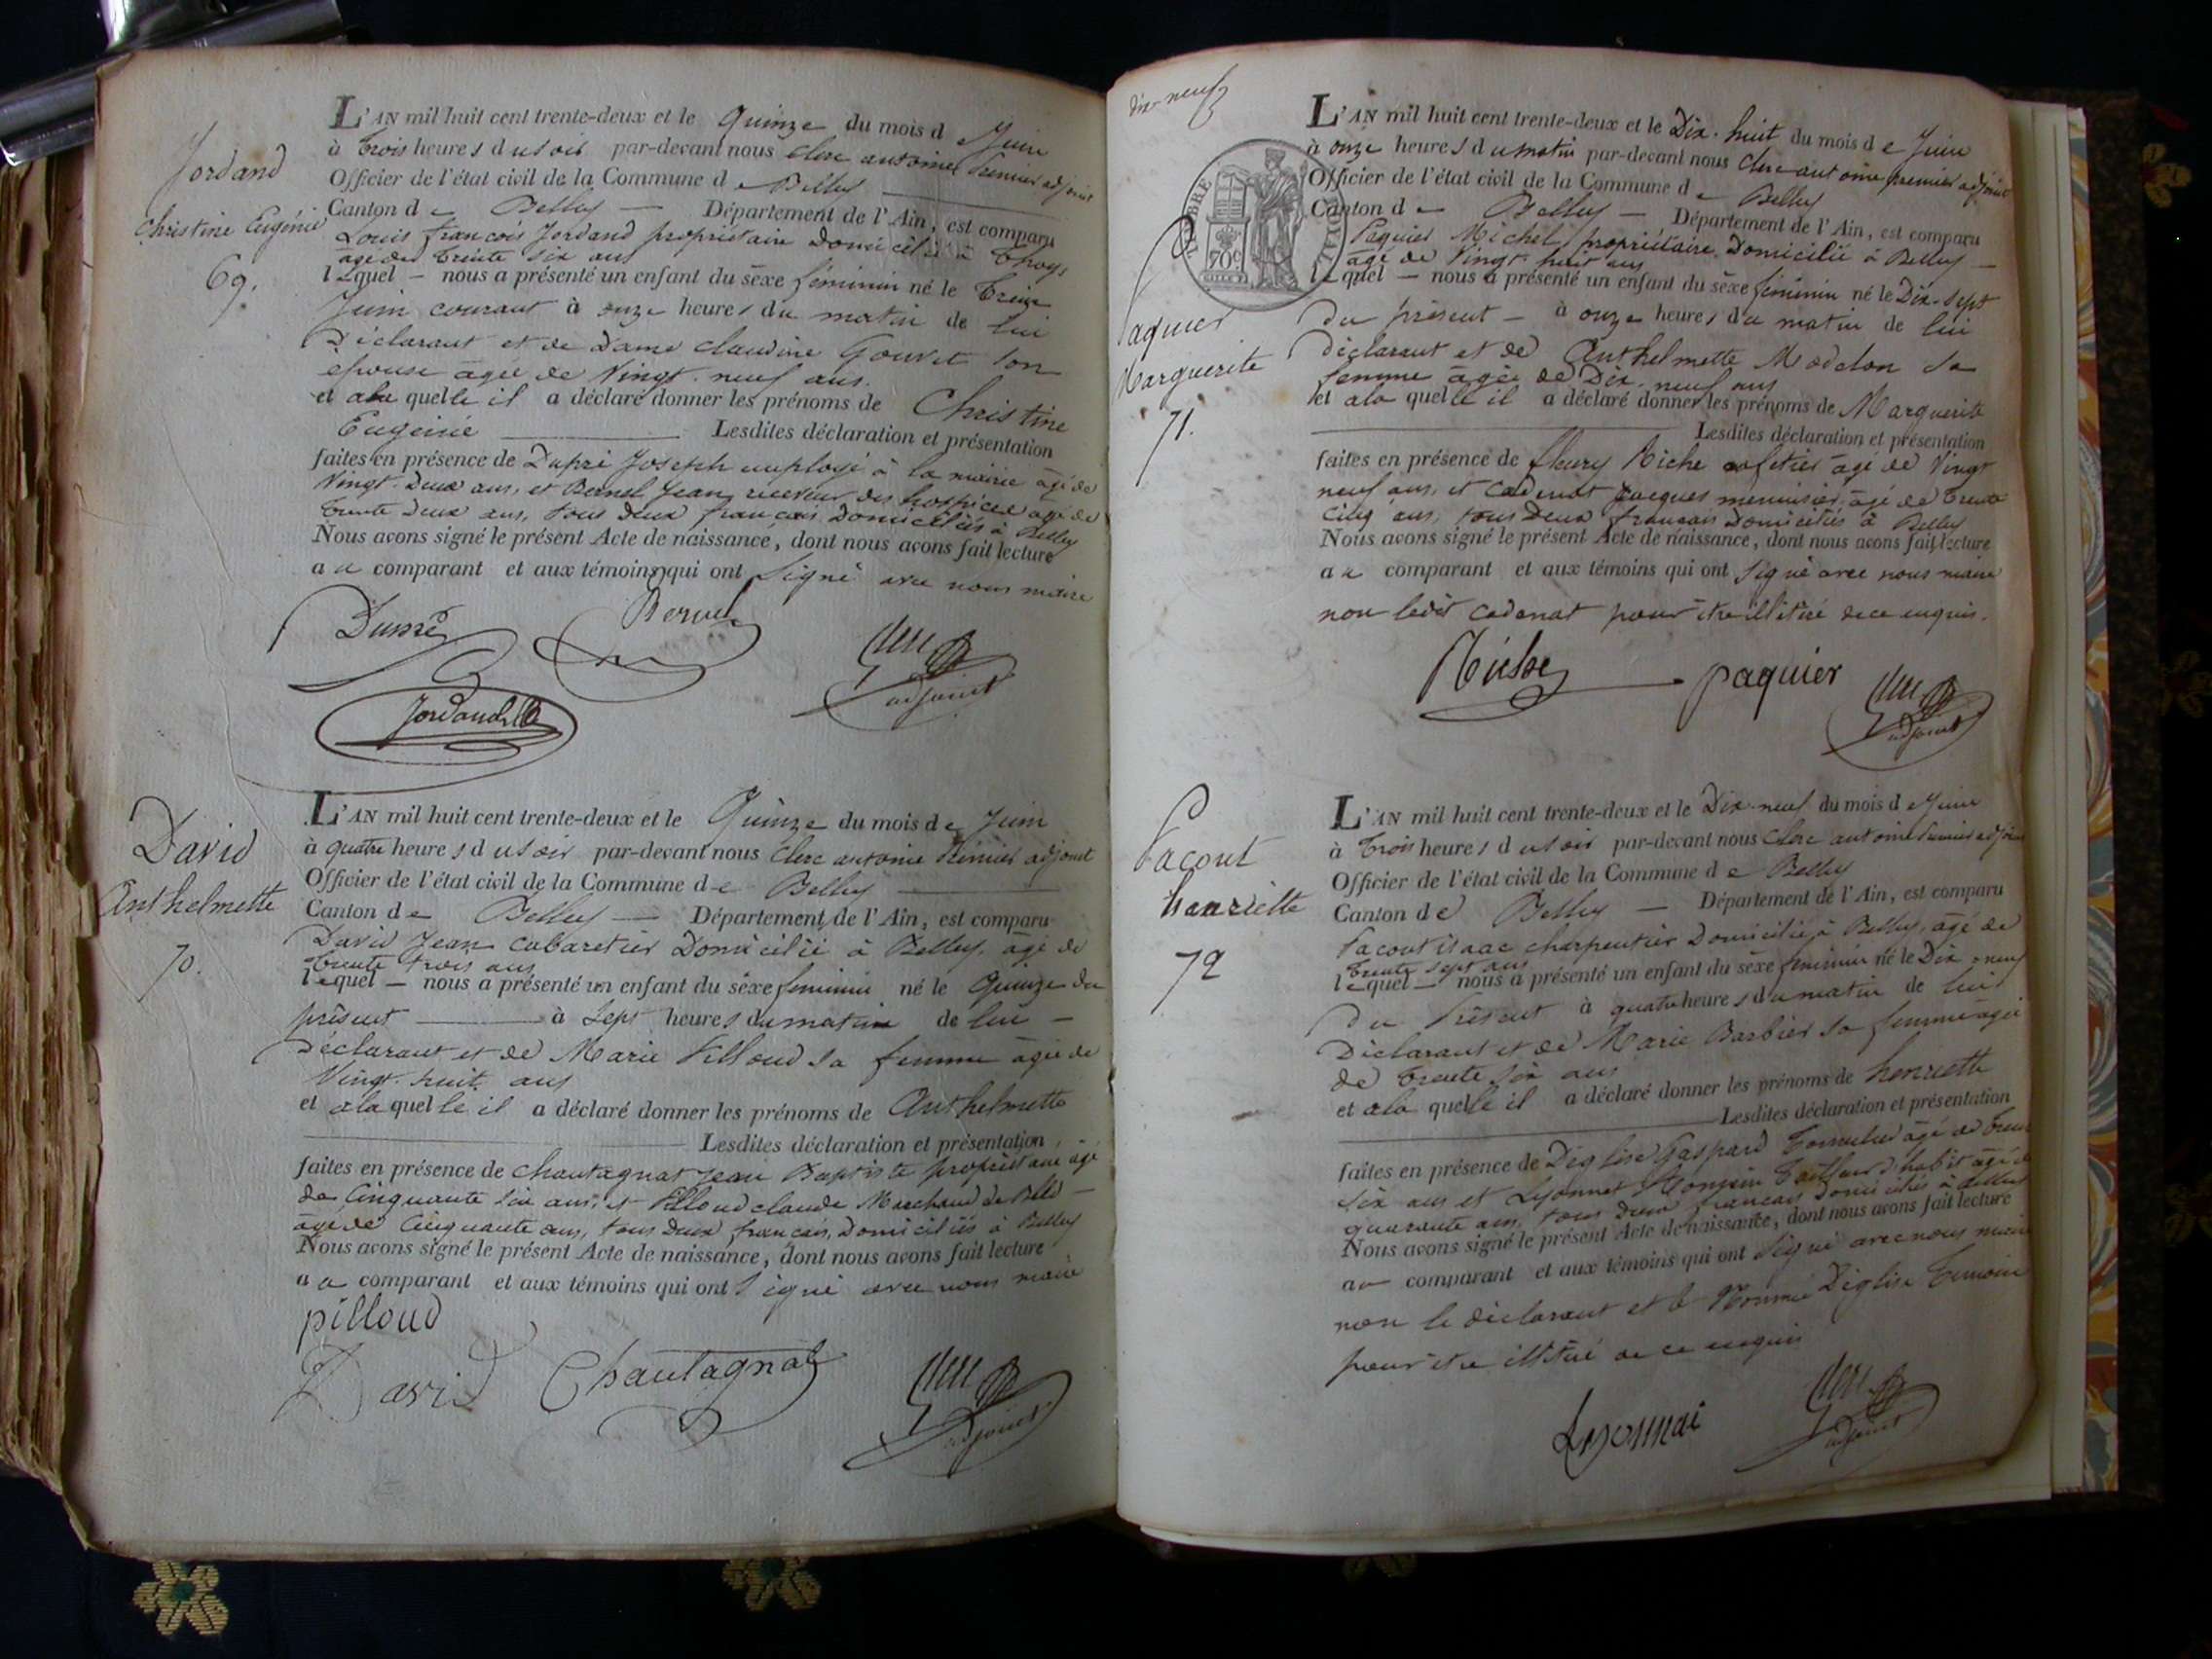 Jordand
Christine Eugénie
69.
L'AN mil huit cent trente-deux et le Quinze du mois de Juin
à Trois heures du soir par-devant nous Clerc antoine Premier adjoint
Officier de l'état civil de la Commune de Belley
Canton de Belley — Département de l'Ain, est comparu
Louis françois Jordand propriétaire Domicilié à Thoys
agé de trente six ans
lequel — nous a présenté un enfant du sèxe féminin né le Treize
Juin courant à onze heures du matin de lui
Déclarant et de Dame Claudine Gouvet son
épouse agée de Vingt-neuf ans.
et a la quelle il a déclaré donner les prénoms de Christine
Eugénie Lesdites déclaration et présentation
faites en présence de Dupré Joseph employé à la mairie âgé de
Vingt Deux ans, et Bernel Jean receveur des hospices agé de
trente Deux ans, tous Deux français Domiciliés à Belley
Nous avons signé le présent Acte de naissance, dont nous avons fait lecture
au comparant et aux témoins qui ont Signé avec nous maire
Dupré Bernel Clerc
adjoint
Jordand
David
Anthelmette
70.
L'AN mil huit cent trente-deux et le Quinze du mois de Juin
à quatre heures du soir par-devant nous Clerc antoine Premier adjoint
Officier de l'état civil de la Commune de Belley
Canton de Belley — Département de l'Ain, est comparu
David Jean cabaretier Domicilié à Belley, âgé de
trente trois ans
lequel — nous a présenté un enfant du sèxe feminin né le Quinze du
présent à Sept heures du matin de lui —
Déclarant et de Marie Pilloud sa femme âgée de
Vingt-huit ans
et a la quelle il a déclaré donner les prénoms de Anthelmette
Lesdites déclaration et présentation
faites en présence de Chautagnat Jean Baptiste propriétaire âgé
de Cinquante six ans, et Pilloud claude Marchand de Bled —
âgé de Cinquante ans, tous Deux français, Domiciliés à Belley
Nous avons signé le présent Acte de naissance, dont nous avons fait lecture
au comparant et aux témoins qui ont Signé avec nous maire
pilloud
David Chautagnat Clerc
adjoint
dix-neuf
TIMBRE
70c
Paquier
Marguerite
71.
L'AN mil huit cent trente-deux et le Dix-huit du mois de Juin
à onze heures du matin par-devant nous Clerc antoine premier adjoint
Officier de l'état civil de la Commune de Belley
Canton de Belley — Département de l'Ain, est comparu
Paquier Michel propriétaire Domicilié à Belley —
âgé de Vingt-huit ans
lequel — nous a présenté un enfant du sèxe féminin né le Dix-sept
du présent — à onze heures du matin de lui
déclarant et de Anthelmette Modelon sa
femme âgée de Dix-neuf ans
et a la quelle il a déclaré donner les prénoms de Marguerite
Lesdites déclaration et présentation
faites en présence de fleury Riche cafetier âgé de Vingt
neuf ans, et Cadenat Jacques menuisier, âgé de trente
cinq ans, tous Deux français Domiciliés à Belley
Nous avons signé le présent Acte de naissance, dont nous avons fait lecture
au comparant et aux témoins qui ont signé avec nous maire
non ledit Cadenat pour être illitéré de ce enquis.
Riche paquier Clerc
adjoint
Pacout
henriette
72
L'AN mil huit cent trente-deux et le Dix-neuf du mois de Juin
à Trois heures du soir par-devant nous Clerc antoine Premier adjoint
Officier de l'état civil de la Commune de Belley
Canton de Belley — Département de l'Ain, est comparu
Pacout isaac charpentier Domicilié à Belley, âgé de
trente sept ans
lequel — nous a présenté un enfant du sèxe féminin né le Dix-neuf
du Présent à quatre heures du matin de lui
Déclarant et de Marie Barbier sa femme âgée
de trente six ans
et a la quelle il a déclaré donner les prénoms de henriette
Lesdites déclaration et présentation
faites en présence de Déglise Gaspard âgé de
six ans et Lyonnet Tailleur d'habit âgé de
quarante ans, tous deux français Domiciliés à Belley
Nous avons signé le présent Acte de naissance, dont nous avons fait lecture
au comparant et aux témoins qui ont Signé avec nous maire
non le déclarant et le Nommé Déglise Témoin
pour être illitéré de ce enquis
Lyonnai Clerc
adjoint